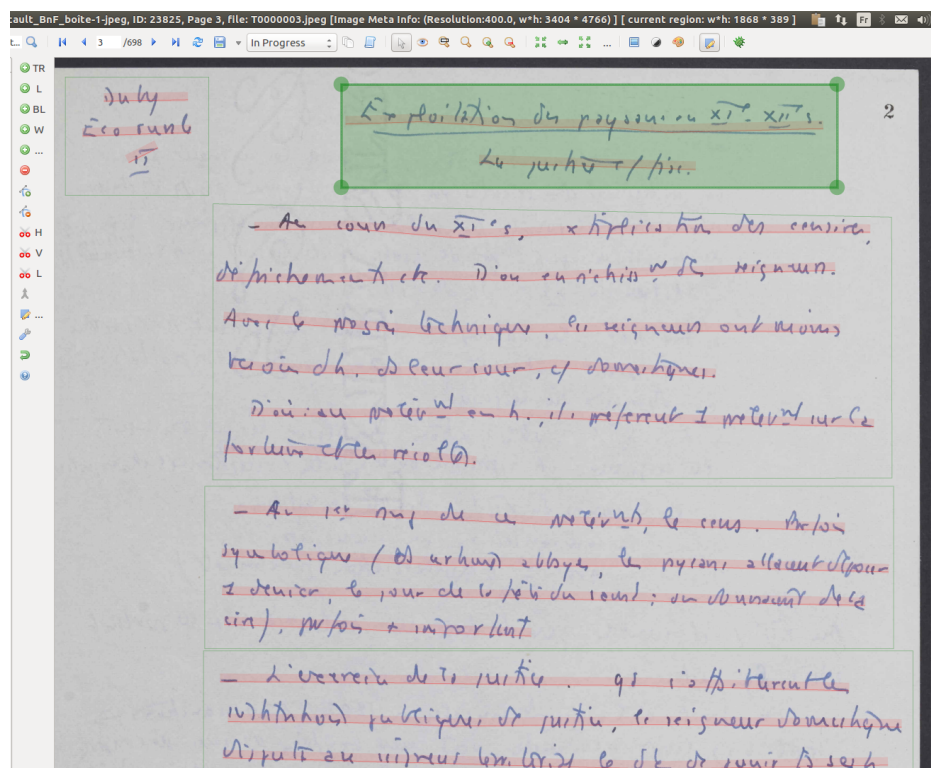 cault_BnF_boîte-1-jpeg, ID: 23825, Page 3, file: T0000003.jpeg [Image Meta Info: (Resolution:400.0, w*h: 3404 * 4766) ] [ current region: w*h: 1868 * 389 ]
Fr
t... 3 /698 In Progress ...
TR
L
BL
W
...
H
V
L
...
Duby
Eco rurale
II
2
Exploitation du paysan au XIe - XIIe s.
La justice / fisc.
– Au cours du XIe s, × tiplication des censives,
défrichement etc. D'où enrichisst des seigneurs.
Avec le progrès technique, les seigneurs ont moins
besoin d'h. ds leur cour, c/ domestiques.
D'où : au prélèvt en h., ils préfèrent 1 prélèvt sur la
fortune et les récoltes.
– Au 1er rang de ce prélèvt, le cens. Parfois
symbolique (ds abbayes, les paysans allaient déposer
1 denier, le jour de la fête du saint ; ou donnaient de la
cire), parfois + important
– L'exercice de la justice.
publiques de justice, le seigneur domestique